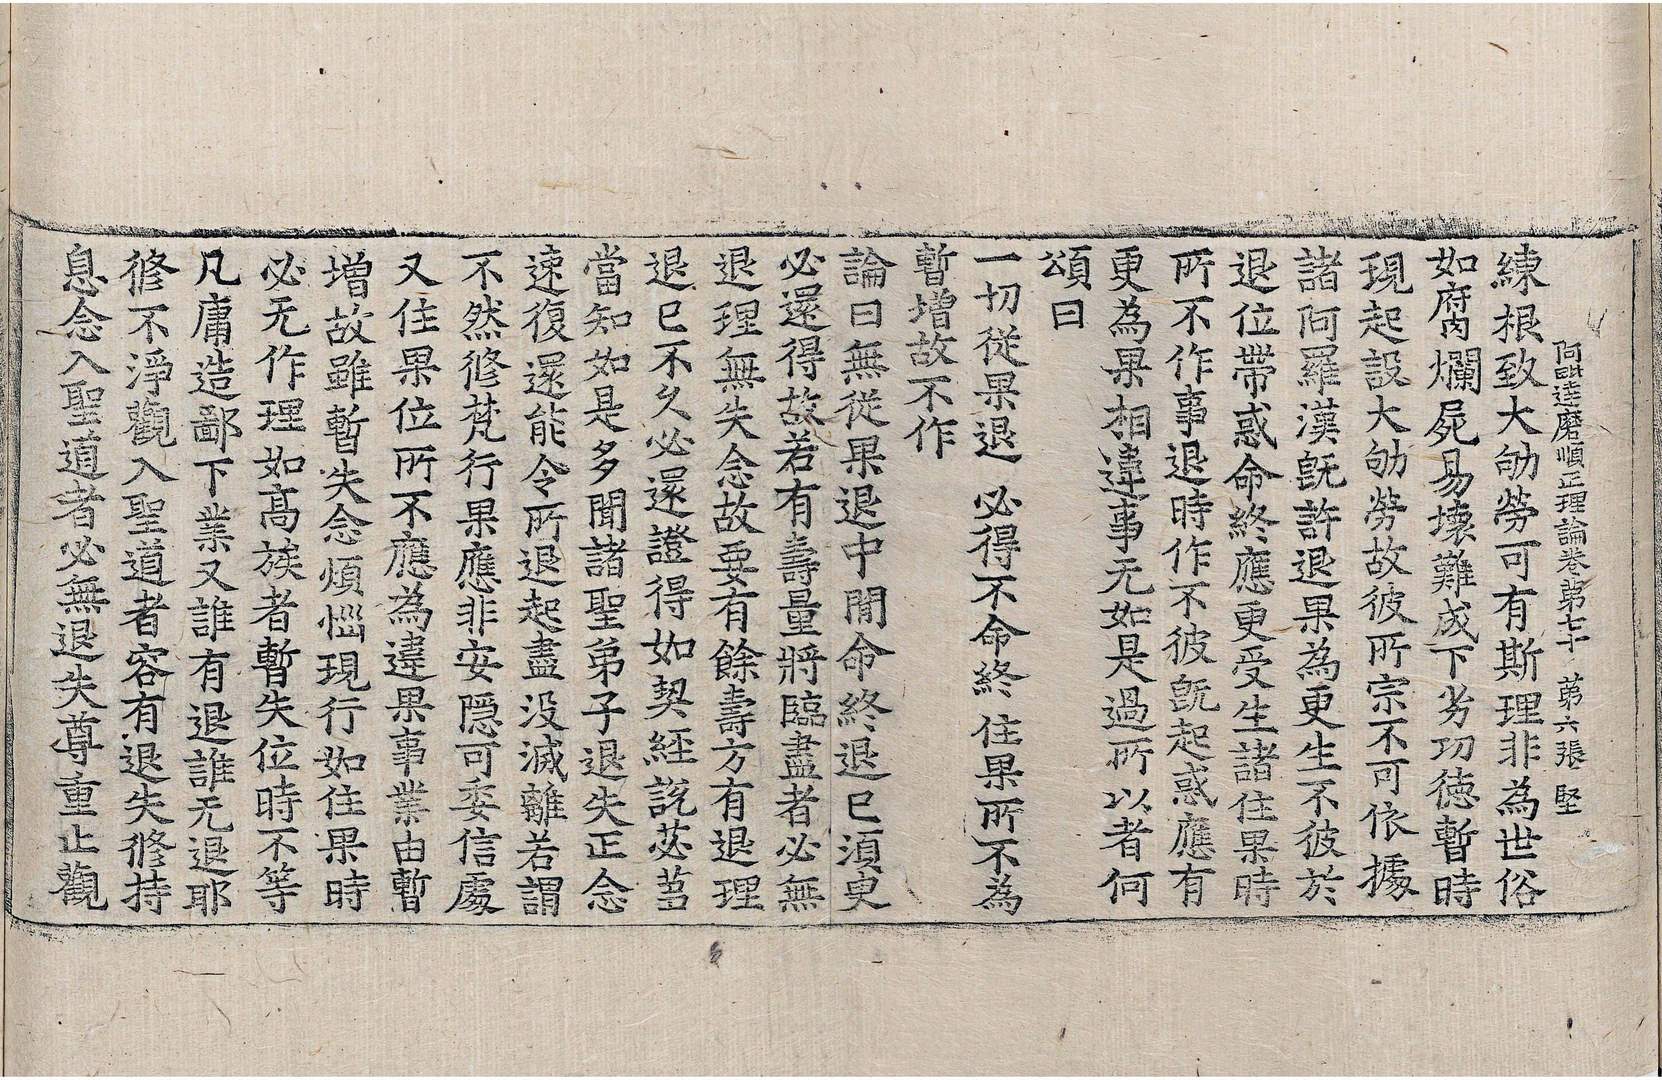 阿毗達磨順正理論卷第七十 第六張 堅
練根致大劬勞可有斯理非為世俗
如腐爛屍易壞難成下劣功德暫時
現起設大劬勞故彼所宗不可依據
諸阿羅漢旣許退果為更生不彼於
退位帶惑命終應更受生諸住果時
所不作事退時作不彼旣起惑應有
更為果相違事无如是過所以者何
頌曰
一切從果退 必得不命終 住果所不為
暫增故不作
論曰無從果退中閒命終退已須臾
必還得故若有壽量將臨盡者必無
退理無失念故要有餘壽方有退理
退已不久必還證得如契經說苾芻
當知如是多聞諸聖弟子退失正念
速復還能令所退起盡没滅離若謂
不然修梵行果應非安隱可委信處
又住果位所不應為違果事業由暫
增故雖暫失念煩惱現行如住果時
必无作理如高族者暫失位時不等
凡庸造鄙下業又誰有退誰无退耶
修不淨觀入聖道者容有退失修持
息念入聖道者必無退失尊重止觀